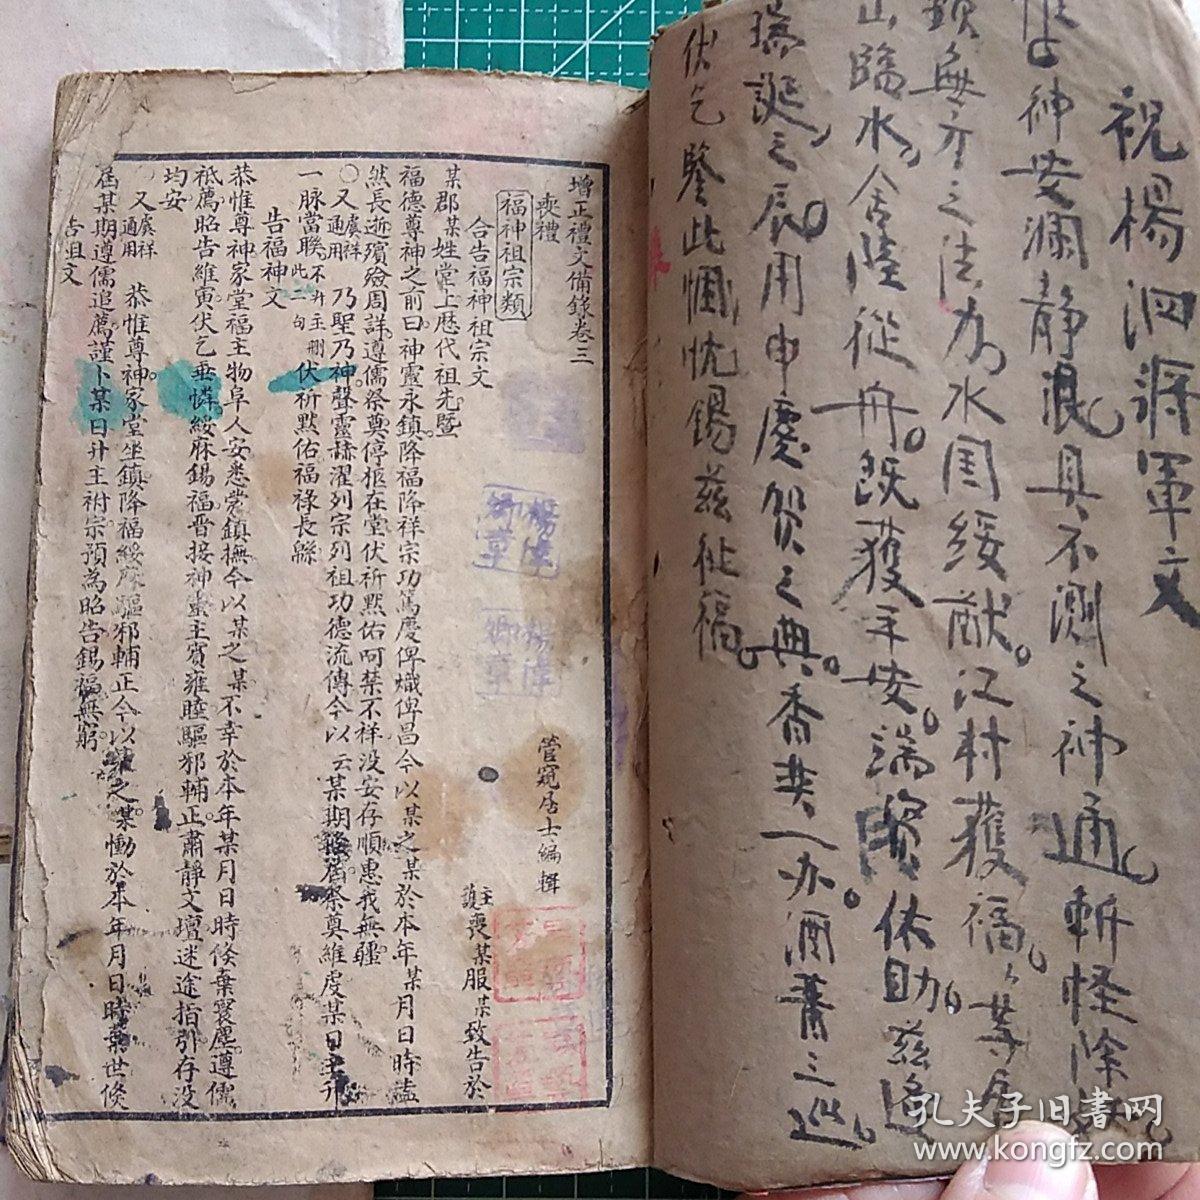 祝楊泗將軍文
惟
神安瀾靜浪具不測之神通斬怪除妖
鎖無方之法力水国綏猷江村獲福等居
山臨水舍陸從舟既獲平安端賴休助兹逢
瑞誕之辰用申慶賀之典香英一办酒薦三巡
伏乞鑒此悃忱錫兹祉福
增正禮文備錄卷三
喪禮
管窺居士編輯
福神祖宗類
合告福神祖宗文
主喪某服某致告於
護
某郡某姓堂上歷代祖先暨
福德尊神之前曰神靈永鎮降福降祥宗功篤慶俾熾俾昌今以某之某於本年某月日時溘
然長逝殯殮周詳遵儒祭奠停柩在堂伏祈默佑呵禁不祥没安存順惠我無疆
○又虞祥通用 乃聖乃神聲靈赫濯列宗列祖功德流傳今以云某期祭奠維虔某日主升
一脈當聯此二句不升主刪伏祈默佑福祿長緜
告福神文
恭惟尊神家堂福主物阜人安悉裳鎮撫今以某之某不幸於本年某月日時倏棄寰塵遵儒
祗薦昭告維寅伏乞垂憐綏庥錫福晋接神靈主賓雍睦驅邪輔正肅靜文壇迷途指引存没
均安
○又虞祥通用 恭惟尊神家堂坐鎮降福綏庥驅邪輔正今以某之某慟於本年月日時棄世倏
屆某期遵儒追薦謹卜某日升主祔宗預為昭告錫福無窮
告祖文
楊
卿章
楊
卿章
孔夫子旧書网
www.kongfz.com